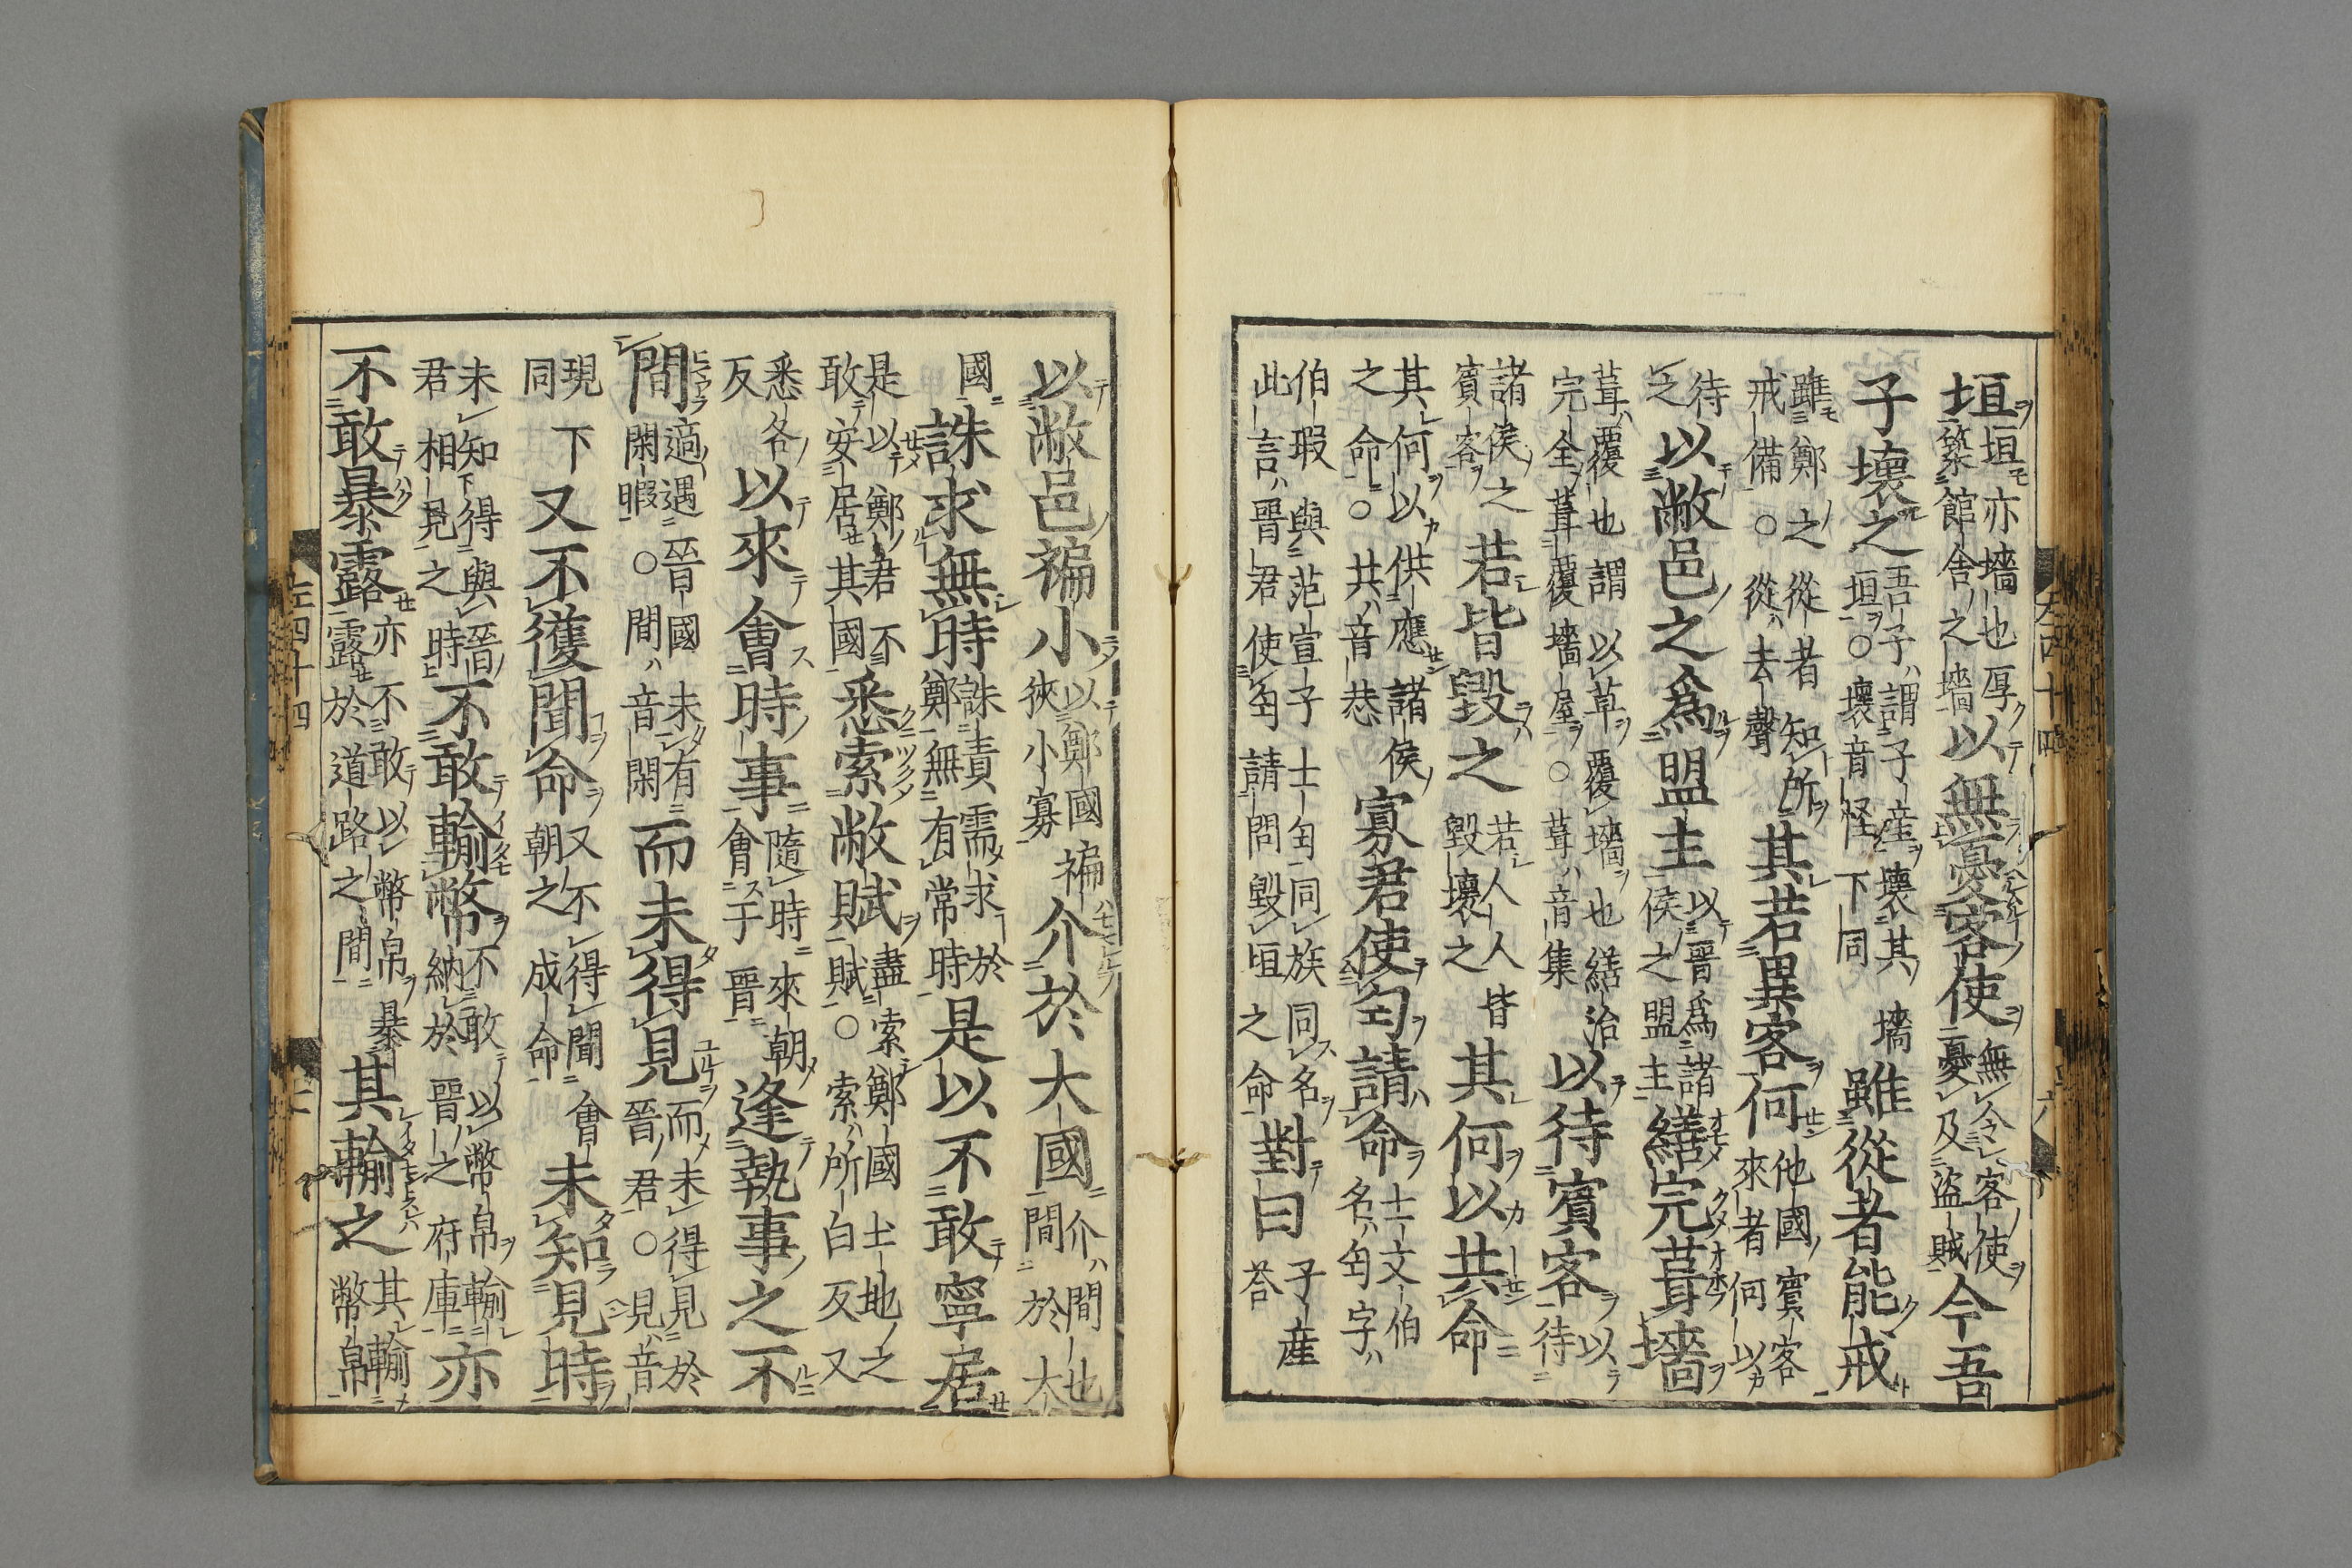 左四十四 六
垣垣亦墻也厚築館舍之墻以無憂客使無令客使憂及盜賊今吾
子壞之吾子謂子産壞其墻垣○壞音怪下同雖從者能戒
雖鄭之從者知所戒備○從去聲其若異客何他國賓客來者何以
待之以敝邑之爲盟主以晉爲諸侯之盟主繕完葺墻
葺覆也謂以草覆墻也繕治完全葺覆墻屋○葺音集以待賓客以待
諸侯之賓客若皆毀之若人人皆毀壞之其何以共命
其何以供應諸侯之命○共音恭寡君使匄請命士文伯名匄字
伯瑕與范宣子士匄同族同名此言晉君使匄請問毀垣之命對曰子産荅
以敝邑褊小以鄭國褊狹小寡介於大國介間也間於大
國誅求無時誅責需求於鄭無有常時是以不敢寧居
是以鄭君不敢安居其國悉索敝賦盡索鄭國土地之賦○索所白反又
悉各反以來會時事隨時來朝會于晉逢執事之不
間適遇晉國未有閑暇○間音閑而未得見而未得見於晉君○見音
現下同又不獲聞命又不得聞會朝之成命未知見時
未知得與晉君相見之時不敢輸幣不敢以幣帛輸納於晉之府庫亦
不敢暴露亦不敢以幣帛暴露於道路之間其輸之其輸幣帛
左四十四